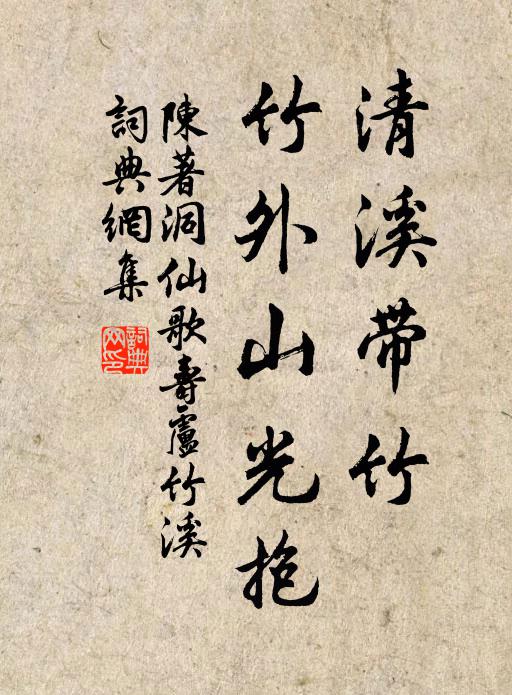 清溪带竹
竹外山光抱
陳著洞仙歌壽盧竹溪
詞典網集
詞典网印